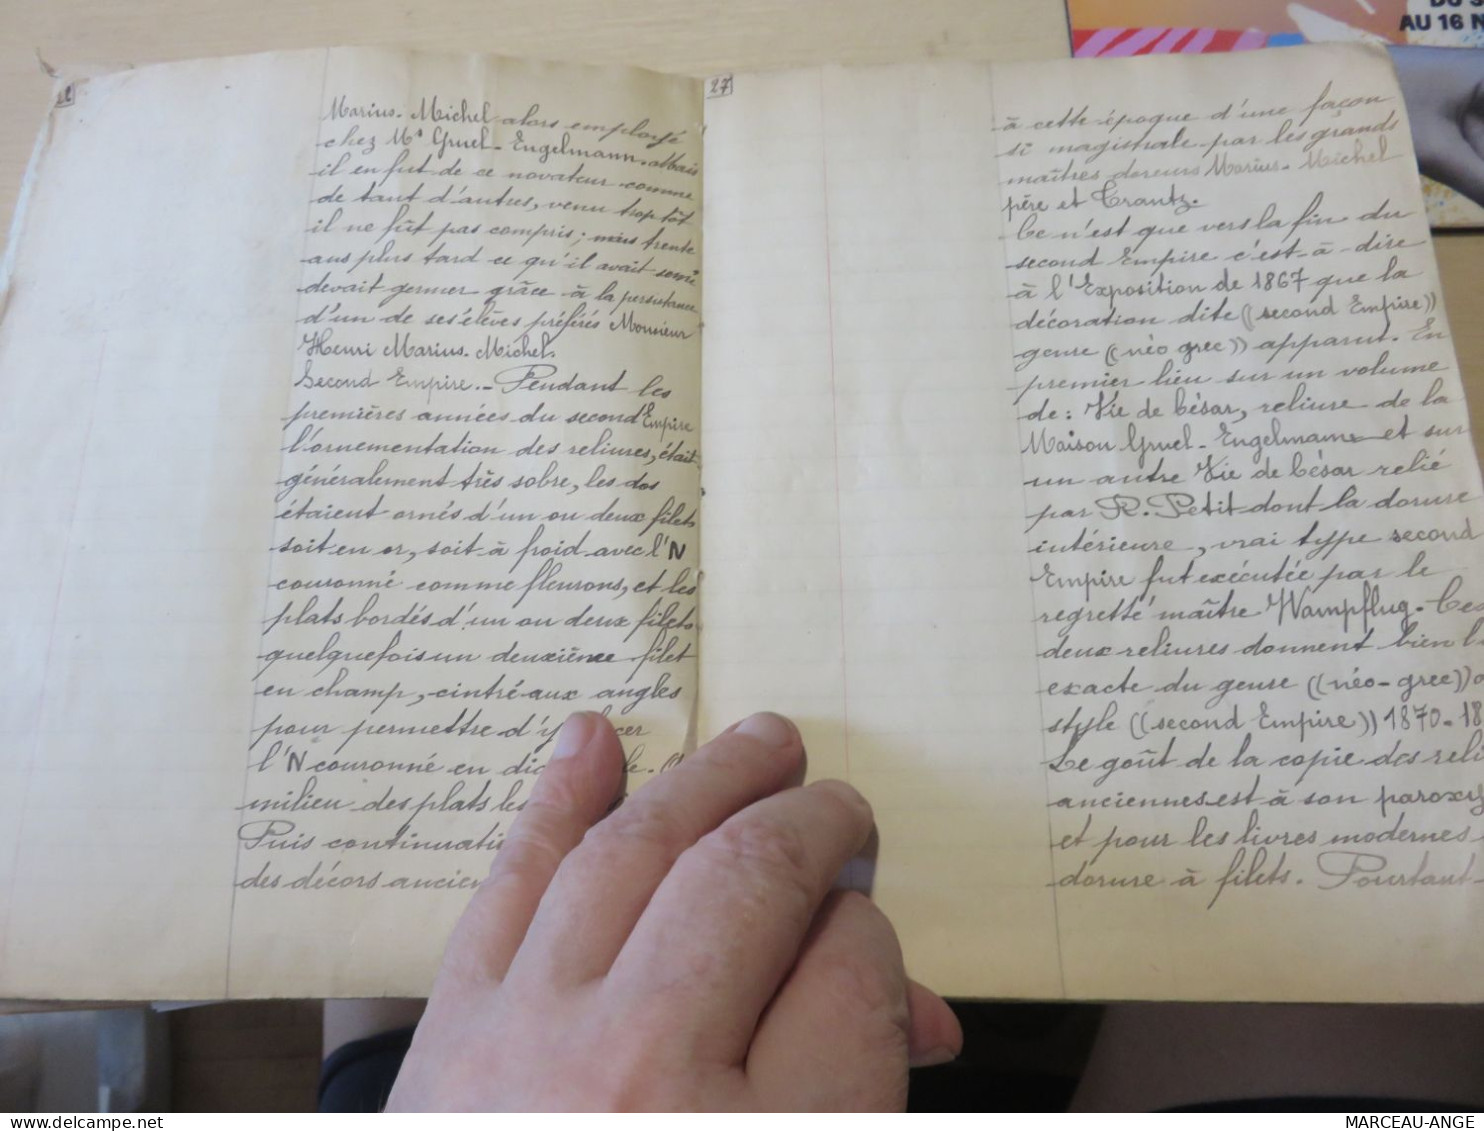 AU 16 N
Marius-Michel alors employé
chez Mr Gruel-Engelmann. Mais
il en fut de ce novateur comme
de tant d'autres, venu trop tôt
il ne fût pas compris; mais trente
ans plus tard ce qu'il avait semé
devait germer grâce à la persistance
d'un de ses élèves préférés Monsieur
Henri Marius-Michel.
Second Empire.- Pendant les
premières années du second Empire
l'ornementation des reliures, était
généralement très sobre, les dos
étaient ornés d'un ou deux filets
soit en or, soit à froid avec l'N
couronné comme fleurons, et les
plats bordés d'un ou deux filets
quelquefois un deuxième filet
en champ, cintré aux angles
pour permettre d'y
l'N couronné en
milieu des plats les
Puis
des décors
27
à cette époque d'une façon
si magistrale par les grands
maîtres doreurs Marius-Michel
père et Trautz.
Ce n'est que vers la fin du
second Empire c'est-à-dire
à l'Exposition de 1867 que la
décoration dite ((second Empire))
genre ((néo grec)) apparut. En
premier lieu sur un volume
de: Vie de César, reliure de la
Maison Gruel-Engelmann et sur
un autre Vie de César relié
par R. Petit dont la dorure
intérieure, vrai type second
Empire fut exécutée par le
regretté maître Wampflug. Ces
deux reliures donnent bien
exacte du genre ((néo-grec))
style ((second Empire)) 1870-18
Le goût de la copie des
anciennes est à son
et pour les livres modernes
dorure à filets. Pourtant
MARCEAU-ANGE